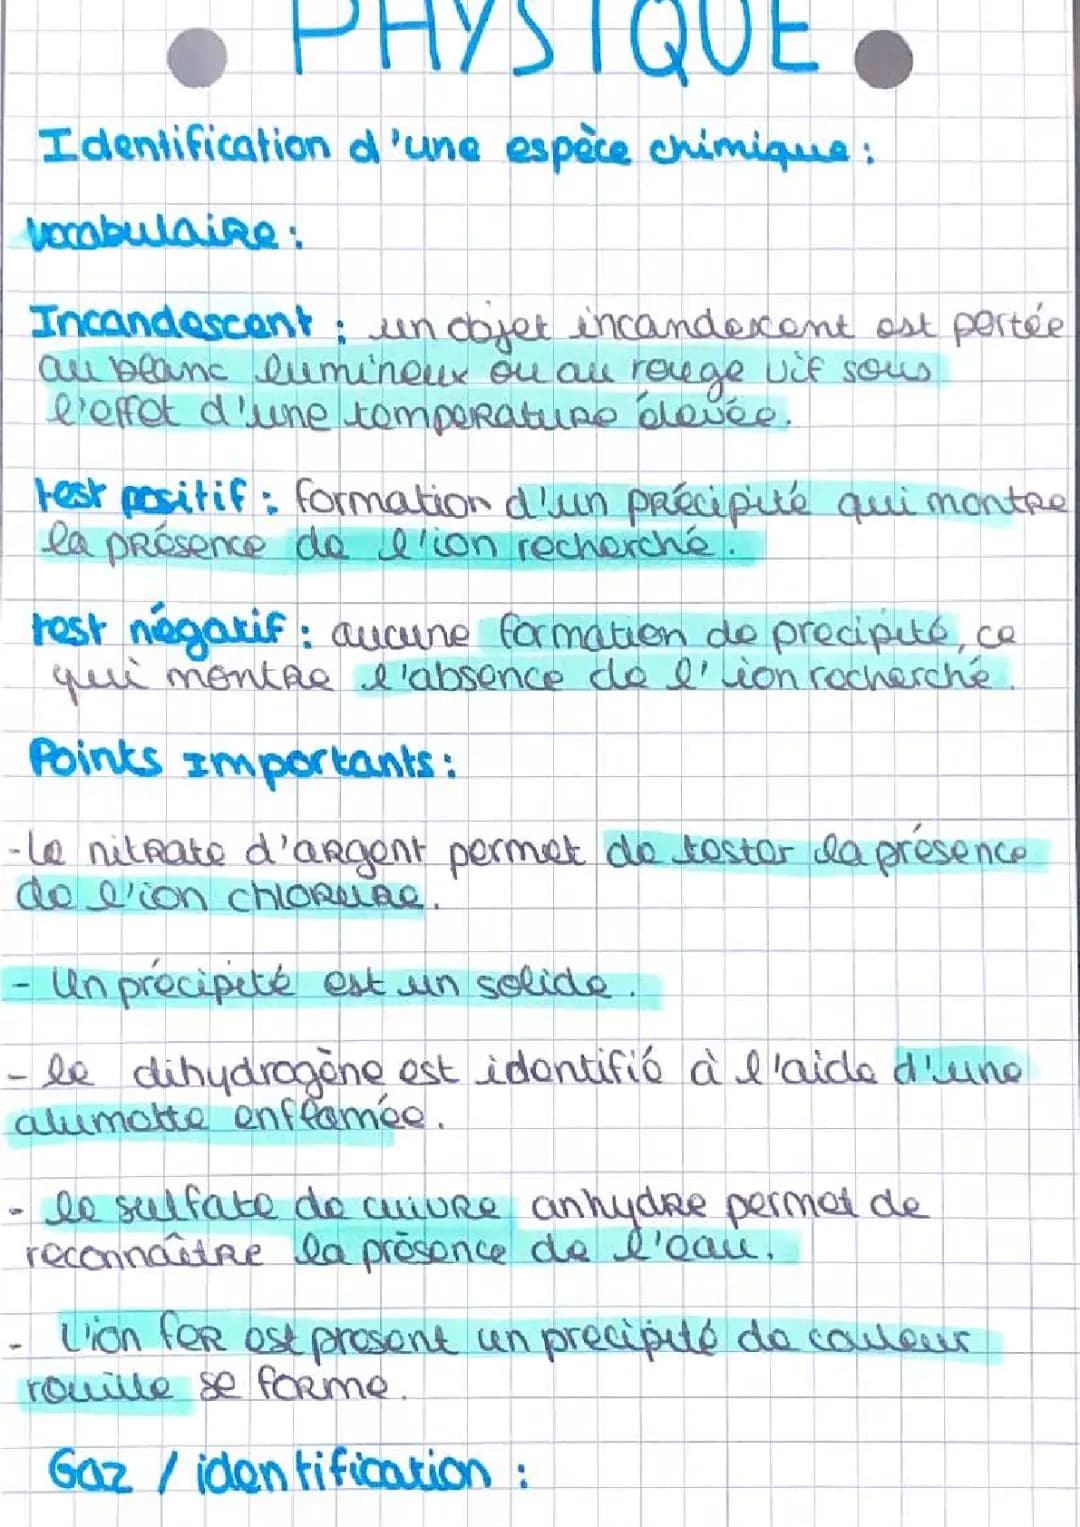 PHYSIQUE
Identification d'une espèce chimique :
vocabulaire :
Incandescent : un objet incandescent est portée
au blanc lumineux ou au rouge vif sous
l'effet d'une temperature élevée.
test positif : formation d'un précipité qui montre
la présence de l'ion recherché.
test négatif : aucune formation de precipité, ce
qui montre l'absence de l' lion recherché.
Points Importants :
- Le nitrate d'argent permet de tester la présence
de l'ion chlorure.
- Un précipité est un solide.
- le dihydrogène est identifié à l'aide d'une
alumette enflamée.
- le sulfate de cuivre anhydre permet de
reconnaître la présence de l'eau.
- l'ion fer est present un precipité de couleur
rouille se forme.
Gaz / identification :